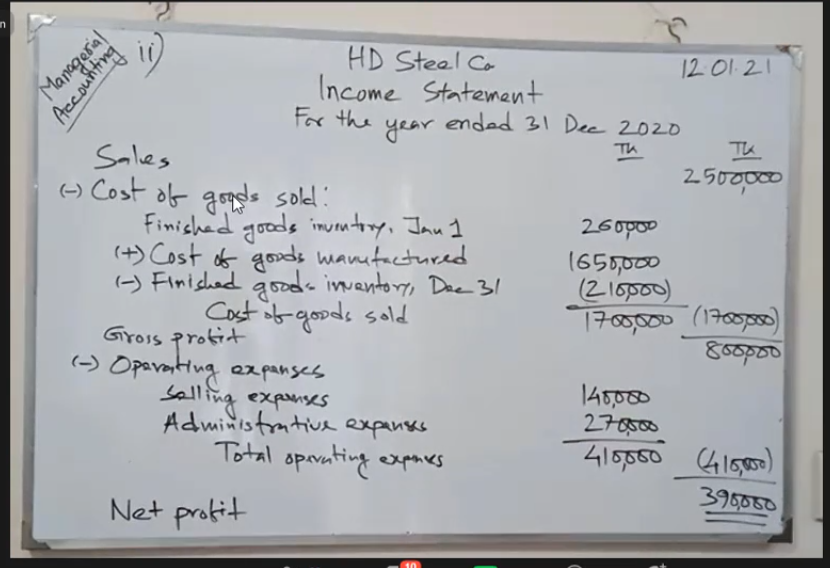 n
Managerial
Accounting
ii)
HD Steel Co
12.01.21
Income Statement
For the year ended 31 Dec 2020
Tk Tk
Sales 2500,000
(-) Cost of goods sold:
Finished goods inventory, Jan 1 260,000
(+) Cost of goods manufactured 1650,000
(-) Finished goods inventory, Dec 31 (210,000)
Cost of goods sold 1700,000 (1700,000)
Gross profit 800,000
(-) Operating expenses
Selling expenses 140,000
Administrative expenses 270,000
Total operating expenses 410,000 (410,000)
Net profit 390,000
10